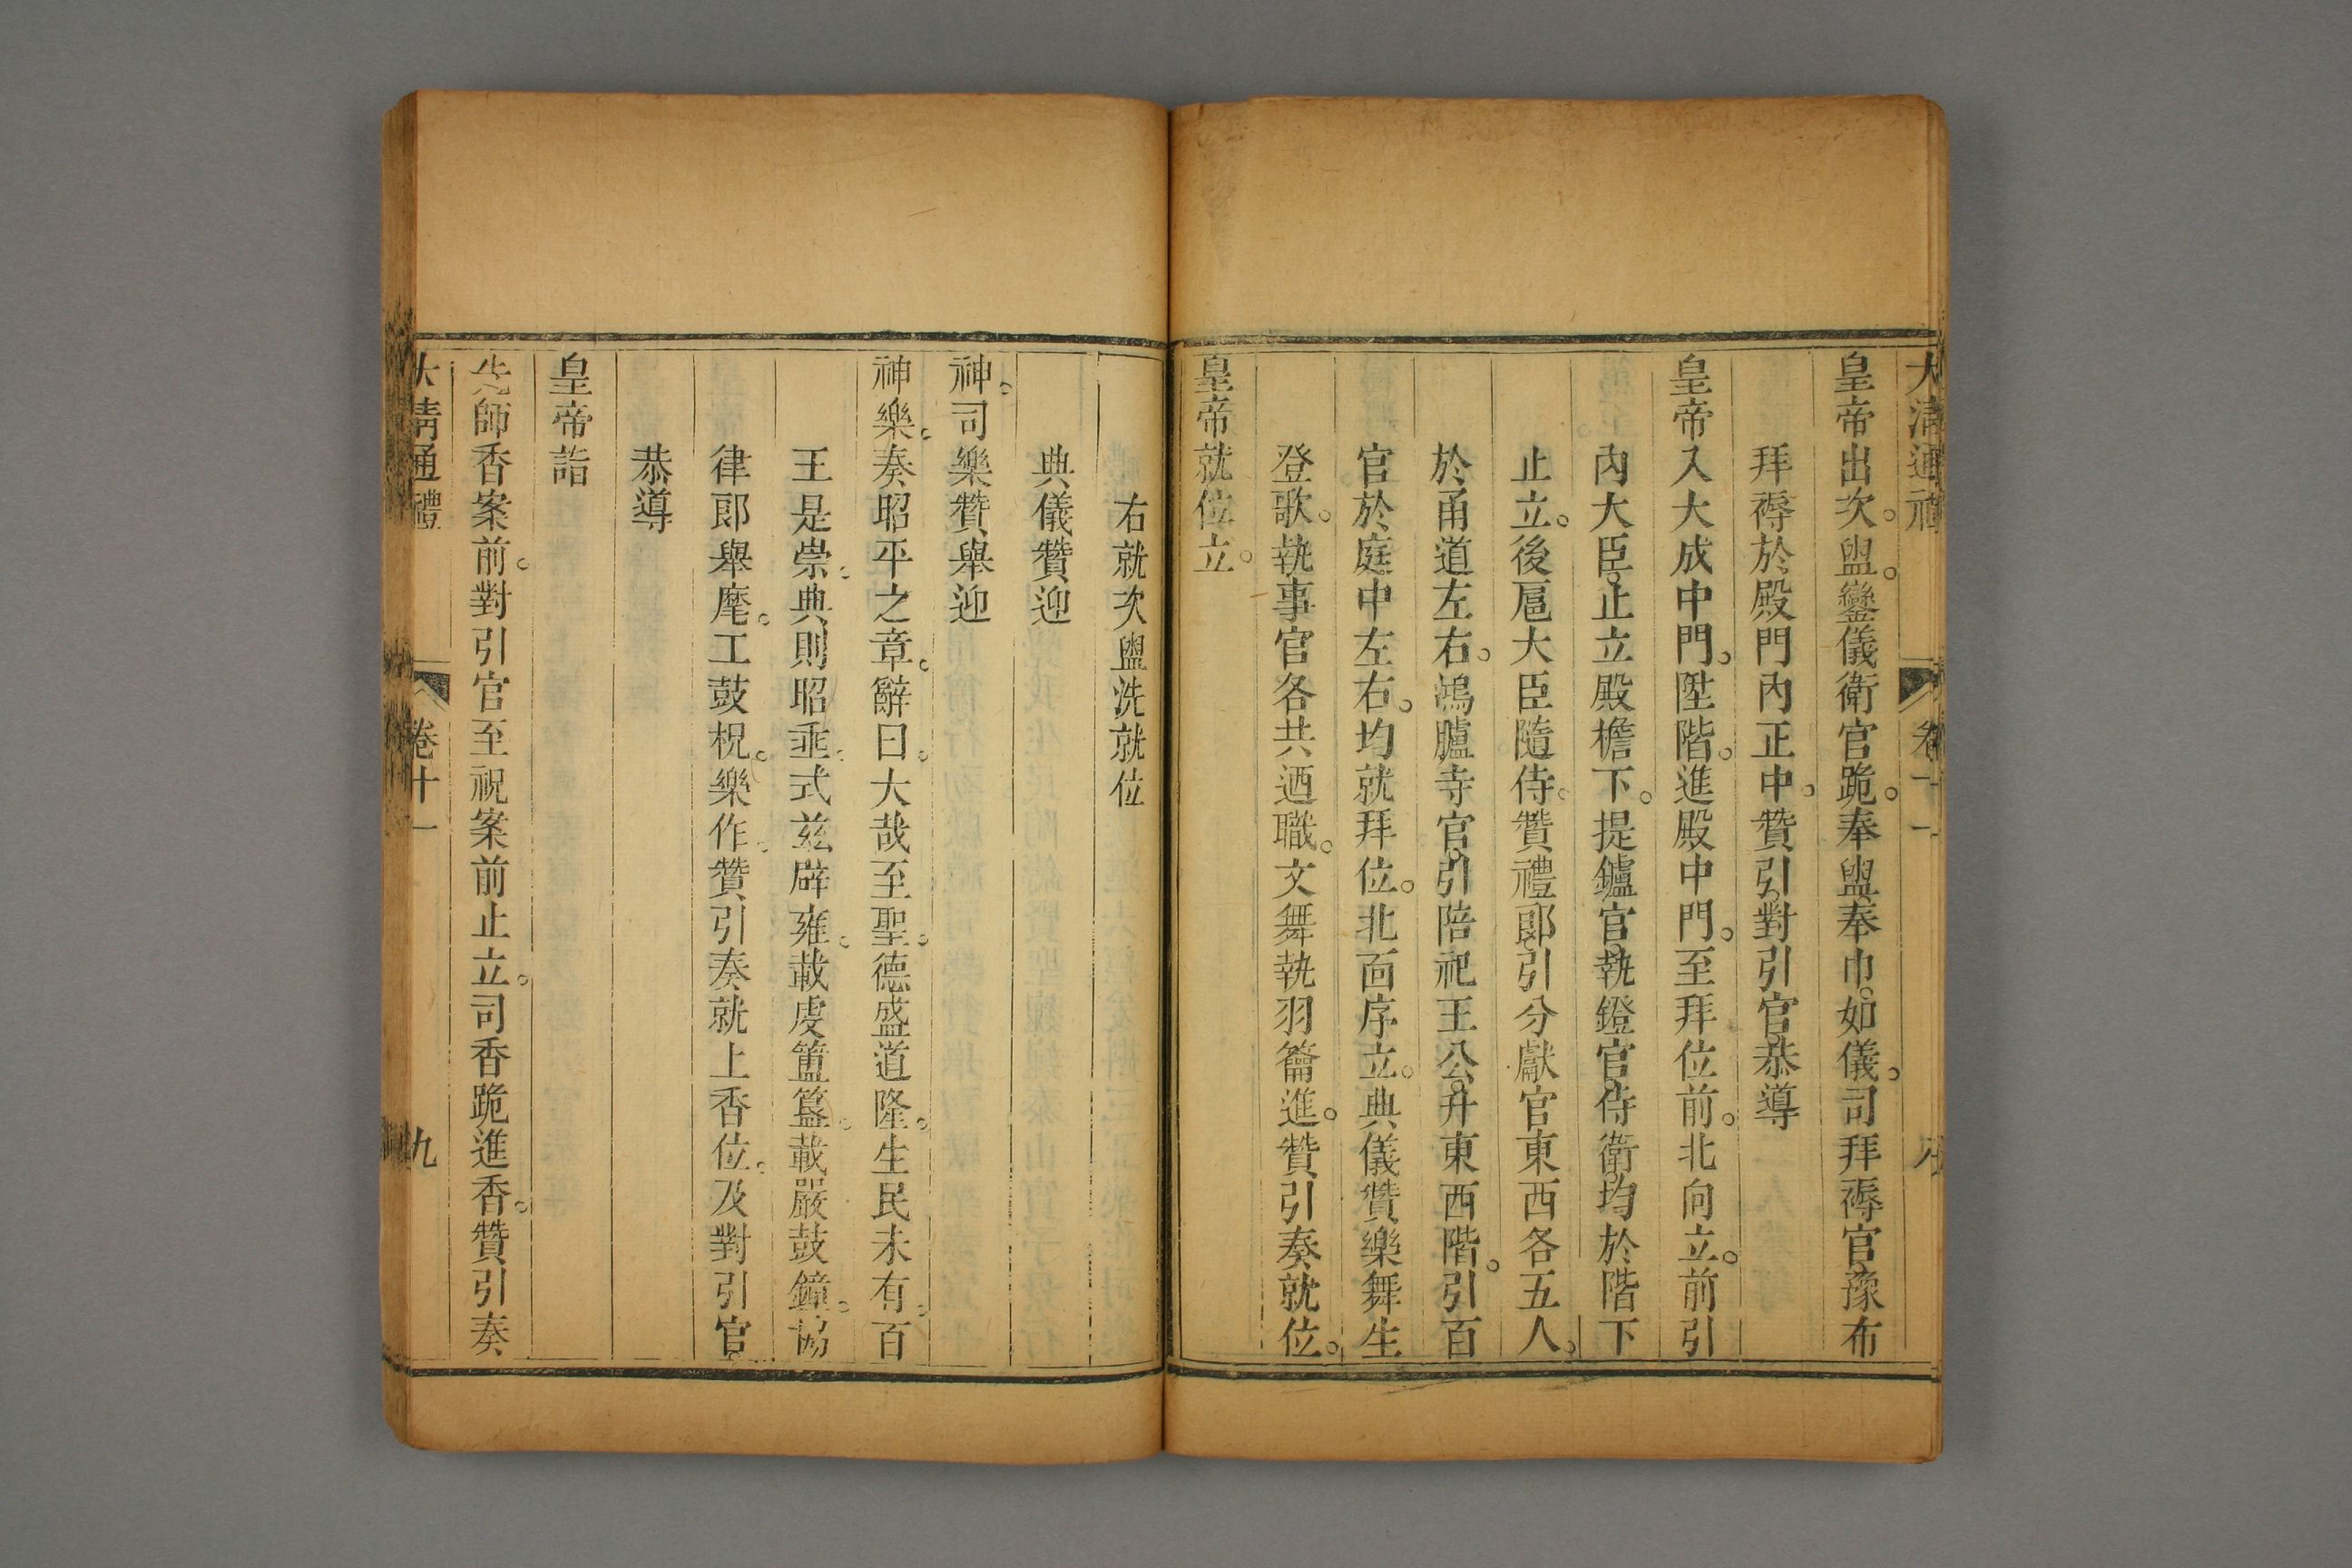 大清通禮 卷十一
皇帝出次。盥。鑾儀衛官跪。奉盥奉巾。如儀。司拜褥官豫布
拜褥於殿門內正中。贊引。對引官。恭導
皇帝入大成中門。陞階。進殿中門。至拜位前。北向立。前引
內大臣。止立殿檐下。提鑪官。執鐙官。侍衛。均於階下
止立。後扈大臣隨侍。贊禮郎。引分獻官東西各五人。
於甬道左右。鴻臚寺官。引陪祀王公。升東西階。引百
官於庭中左右。均就拜位。北面序立。典儀贊樂舞生
登歌。執事官各共迺職。文舞執羽籥進。贊引奏就位。
皇帝就位立。
右就次盥洗就位
典儀贊迎
神。司樂贊舉迎
神樂。奏昭平之章。辭曰。大哉至聖。德盛道隆。生民未有。百
王是崇。典則昭垂。式茲辟雍。載虔簠簋。載嚴鼓鐘。協
律郎舉麾。工鼓柷。樂作。贊引奏就上香位。及對引官。
恭導
皇帝詣
先師香案前。對引官至祝案前止立。司香跪進香。贊引奏
大清通禮 卷十一 九